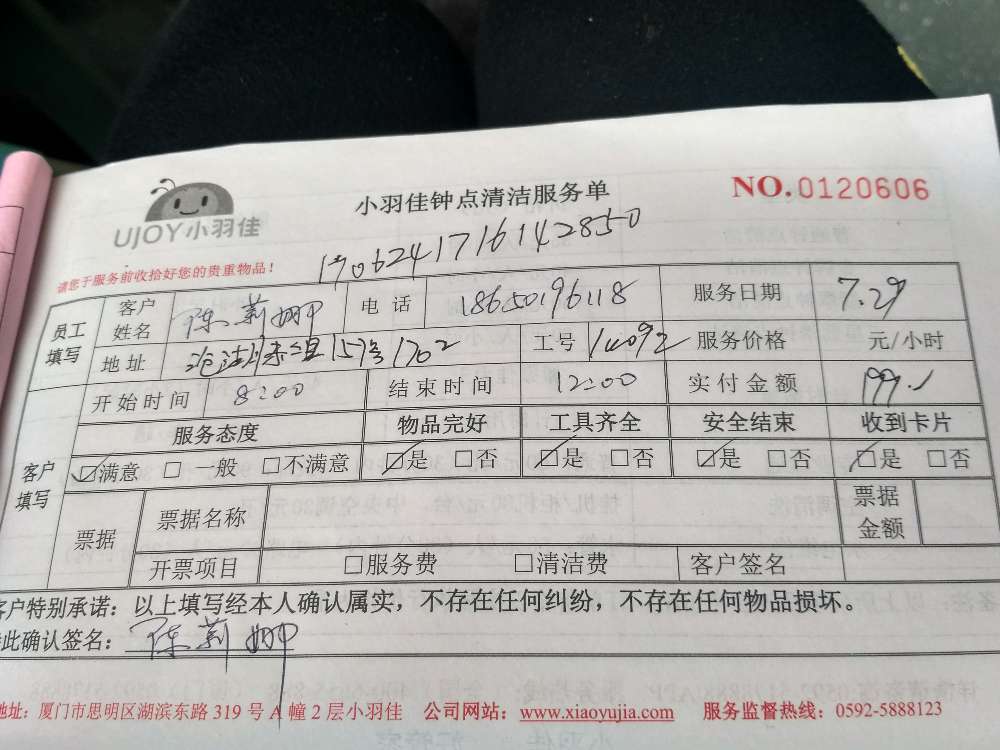 UJOY小羽佳
小羽佳钟点清洁服务单
NO.0120606
请您于服务前收拾好您的贵重物品!
17062417161428550
员工填写 客户姓名 陈莉娜 电话 18650196118 服务日期 7.29
地址 157号1702 工号 14092 服务价格 元/小时
客户填写 开始时间 8:00 结束时间 12:00 实付金额 199.1
服务态度 物品完好 工具齐全 安全结束 收到卡片
☑满意 □ 一般 □不满意 ☑是 □否 ☑是 □否 ☑是 □否 ☑是 □否
票据 票据名称 票据金额
开票项目 □服务费 □清洁费 客户签名
客户特别承诺:以上填写经本人确认属实,不存在任何纠纷,不存在任何物品损坏。
此确认签名:陈莉娜
地址:厦门市思明区湖滨东路 319 号 A 幢 2 层小羽佳 公司网站:www.xiaoyujia.com 服务监督热线:0592-5888123